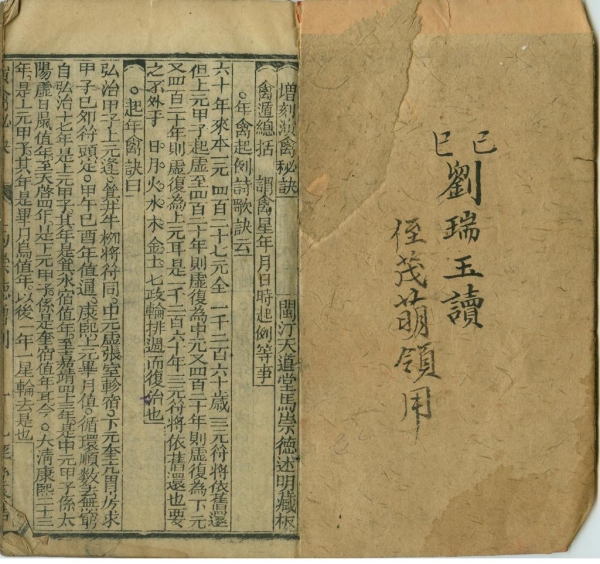 己巳
劉瑞玉讀
侄茂萌領用
增刻演禽秘訣
閩汀天道堂馬崇德述明藏板
禽遁總括 謂禽星年月日時起例等事
年禽起例詩歌訣云
六十年來本一元 四百二十七元全 一千二百六十歲 三元符將依舊還
但上元甲子起虛至四百二十年則虛復為中元又四百二十年則虛復為下元
又四百二十年則虛復為上元耳是一千二百六十年三元符將依舊還也要
之不外乎 日月火水木金土 七政輪排週而復治也
起年禽訣曰
弘治甲子上元逢 箕井牛柳將符同 中元虛張室軫宿 下元奎亢胃房求
甲子已卯符頭定 甲午巳酉年值逼 康熙上元畢月值 循環順數去無窮
自弘治十七年是上元甲子其年是箕水宿值年至嘉靖四十三年是中元甲子係太
陽虛日鼠值年至天啓四年是下元甲子係是奎宿值年耳今 大清康熙二十三
年是上元甲子其年是畢月烏值年以後一年一星輪去是也